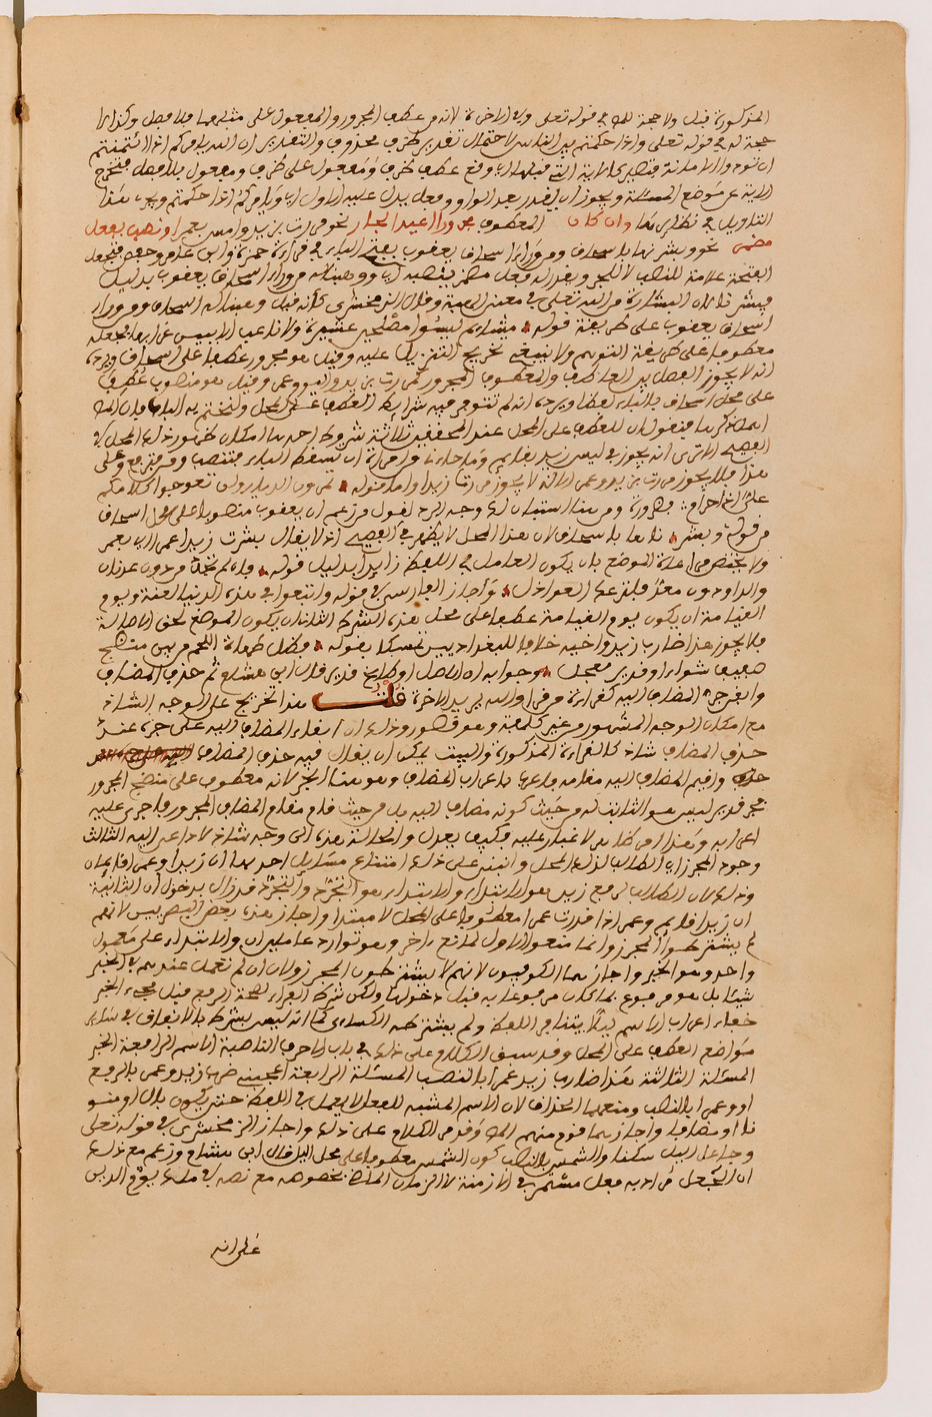 المذكورة قبل ولا حجة للمص في قوله تعلى وفي الاخرة لانه من عطف المجرور والمفعول على مثلهما فلا فصل وكذا لا
حجة له في قوله تعلى واذا حكمتم بين الناس لاحتمال تقدير ظرف محذوف والتقدير ان الله يامركم اذا ائتمنتم
ان تودوا الامانة فتصير كالاية التي قبلها اي وقع عطف ظرف ومفعول على ظرف ومفعول بلا فصل فتخرج
الاية عن موضع المسئلة ويجوز ان يقدر بعد الواو وفعل يدل عليه الاول اي ويامركم اذا حكمتم ويجب هذا
التاويل في نظائرها وان كان المعطوف مجرورا اعيد الجار نحو مررت بزيد وامس بعمرا او نصب بفعل
مضمر نحو وبشرناها باسحاق ومن وراء اسحاق يعقوب بفتح الباء في قراءة حمزة وابن عامر وحفص فتجعل
الفتحة علامة للنصب لا للجر ويقدر له فعل مضمر ينصبه اي ووهبنا له من وراء اسحاق يعقوب بدليل
فبشرناها لان البشارة من الله تعلى في معنى الهبة وقال الزمخشري كانه قيل ووهبنا له اسحاق ومن وراء
اسحاق يعقوب على طريقة قوله مشائم ليسوا مصلحين عشيرة ولا ناعب الا ببين غرابها فجعله
معطوفا على طريقة التوهم ولا ينبغي تخريج التنزيل عليه وقيل هو مجرور عطفا على اسحاق ويرده
انه لا يجوز الفصل بين العاطف والمعطوف المجرور كمررت بزيد واليوم عمرو وقيل هو منصوب عطفا
على محل اسحاق بالباء لفظا ويرده انه لم تتوفر فيه شرايط العطف على المحل ولنختم به الباب فان المص
اهمل ذكرها فنقول ان للعطف على المحل عند المحققين ثلاثة شروط احدها امكان ظهور ذلك المحل في
الفصيح الا ترى انه يجوز في ليس زيد بقايم وما جاءنا من امراة ان تسقط الباء فتنصب ومن فترفع وعلى
هذا فلا يجوز مررت بزيد وعمرا لانه لا يجوز مررت زيدا واما قوله تمرون الديار ولن تعوجوا كلامكم
علي اذا حرام فضرورة ومن هنا استبان لك وجه الرد لقول من زعم ان يعقوب منصوب على محل اسحاق
من قوله وبشرناها باسحاق لان هذا المحل لا يظهر في الفصيح اذ لا يقال بشرت زيدا عمرا اي بعمر
ولا يختص مراعاة الموضع بان يكون العامل في اللفظ زايدا بدليل قوله فان لم تجد من دون عدنان
والدا ودون معد فلتزعك العواذل واجاز الفارسي في قوله واتبعوا في هذه الدنيا لعنة ويوم
القيامة ان يكون يوم القيامة عطفا على محل هذه الشرط الثاني ان يكون الموضع بحق الاصالة
فلا يجوز هذا ضارب زيد واخيه خلافا للبغداديين تمسكا بقوله فظل طهاة اللحم من بين منضج
صفيف شواء او قدير معجل وجوابه ان الاصل او طابخ قدير قال ابن هشام ثم حذف المضاف
وابقي جر المضاف اليه كقراءة ومن قرا والله يريد الاخرة قلت هذا تخريج على الوجه الشاذ
مع امكان الوجه المشهور من غير كلفة وهو قصور وذلك ان ابقاء المضاف اليه على جره عند
حذف المضاف شاذ كالقراءة المذكورة والبيت يمكن ان يقال فيه حذف المضاف
واقيم المضاف اليه مقامه فاعرب باعراب المضاف وهو هنا الجر لانه معطوف على منضج المجرور
فجر قدير ليس هو الثابت له من حيث كونه مضافا اليه بل من حيث قام مقام المضاف المجرور فاجري عليه
اعرابه وهذا امر ظاهر لا غبار عليه فكيف يعدل والحالة هذه الى وجه شاذ لا داعي اليه الثالث
وجود المحرز اي الطالب لذلك المحل وانبنى على ذلك امتناع مسائل احدها ان زيدا وعمرو قايمان
وذلك لان الطالب لرفع زيد هو الابتداء والابتداء هو التجرد والتجرد قد زال بدخول ان الثانية
ان زيدا قايم وعمرو اذا قدرت عمرا معطوفا على المحل لا مبتدا واجاز هذه بعض البصريين لانهم
لم يشترطوا المحرز وانما منعوا الاولى لمانع اخر وهو توارد عاملين ان والابتداء على معمول
واحد وهو الخبر واجازهما الكوفيون لانهم لا يشترطون المحرز ولان ان لم تعمل عندهم في الخبر
شيئا بل هو مرفوع بما كان مرفوعا به قبل دخولها ولكن شرط الفراء لصحة الرفع قبل مجيء الخبر
خفاء اعراب الاسم ليلا يتنافر اللفظ ولم يشترطه الكسائي كما انه ليس بشرط بالاتفاق في سائر
مواضع العطف على المحل وقد سبق الكلام على ذلك في باب الاحرف الناصبة الاسم الرافعة الخبر
المسئلة الثالثة هذا ضارب زيد عمرا بالنصب المسئلة الرابعة اعجبني ضرب زيد وعمرو بالرفع
او وعمرا بالنصب ومنعهما الحذاق لان الاسم المشبه للفعل لا يعمل في اللفظ حتى يكون بال او منو
نا او مضافا واجازهما قوم منهم المص وقد مر الكلام على ذلك واجاز الزمخشري في قوله تعلى
وجاعل اليل سكنا والشمس بالنصب كون الشمس معطوفا على محل اليل قال ابن هشام وزعم مع ذلك
ان الجعل مراد به فعل مستمر في الازمنة لا الزمان الماضي بخصوصه مع نصه في ملك يوم الدين
على انه